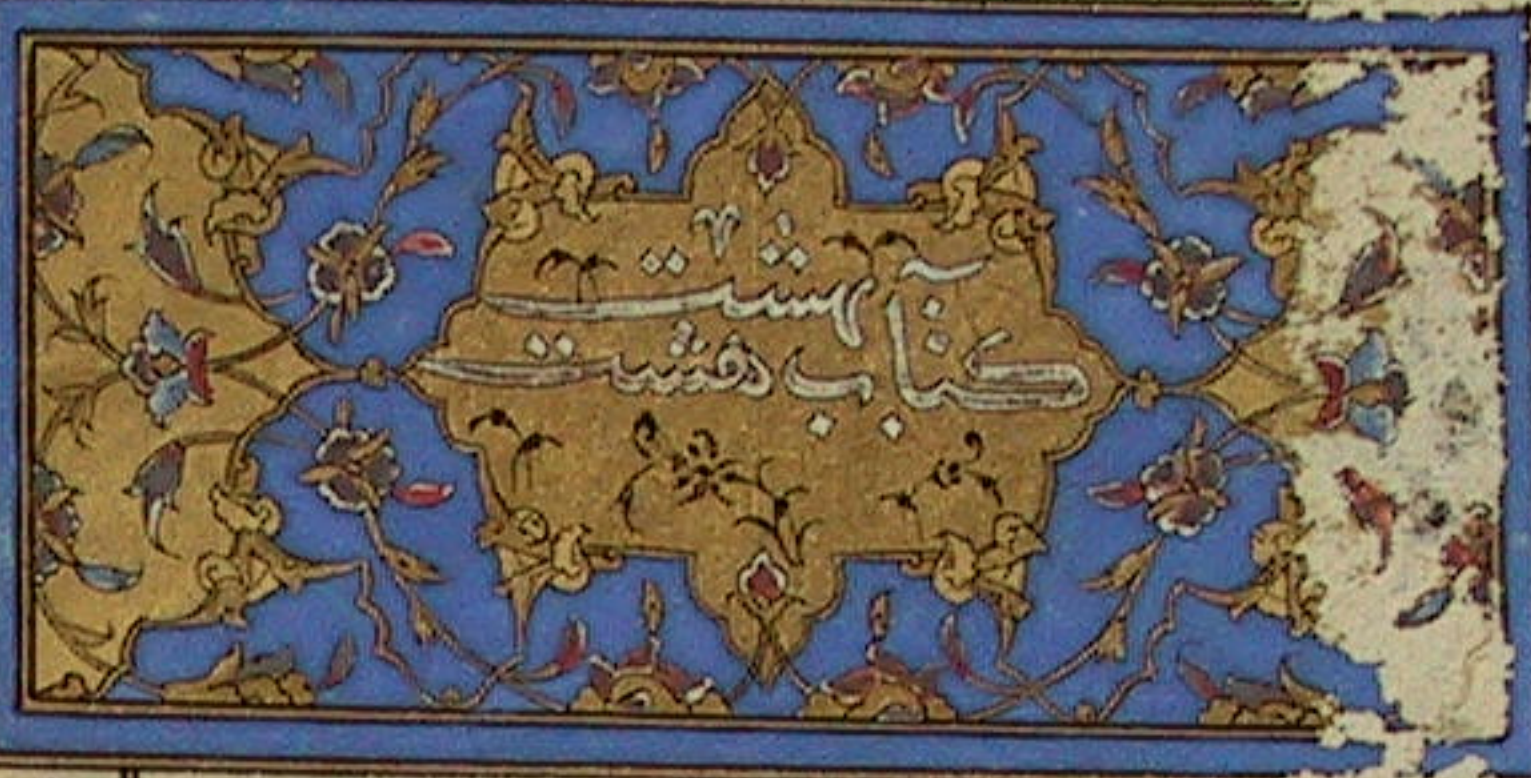 کتاب هشت بهشت